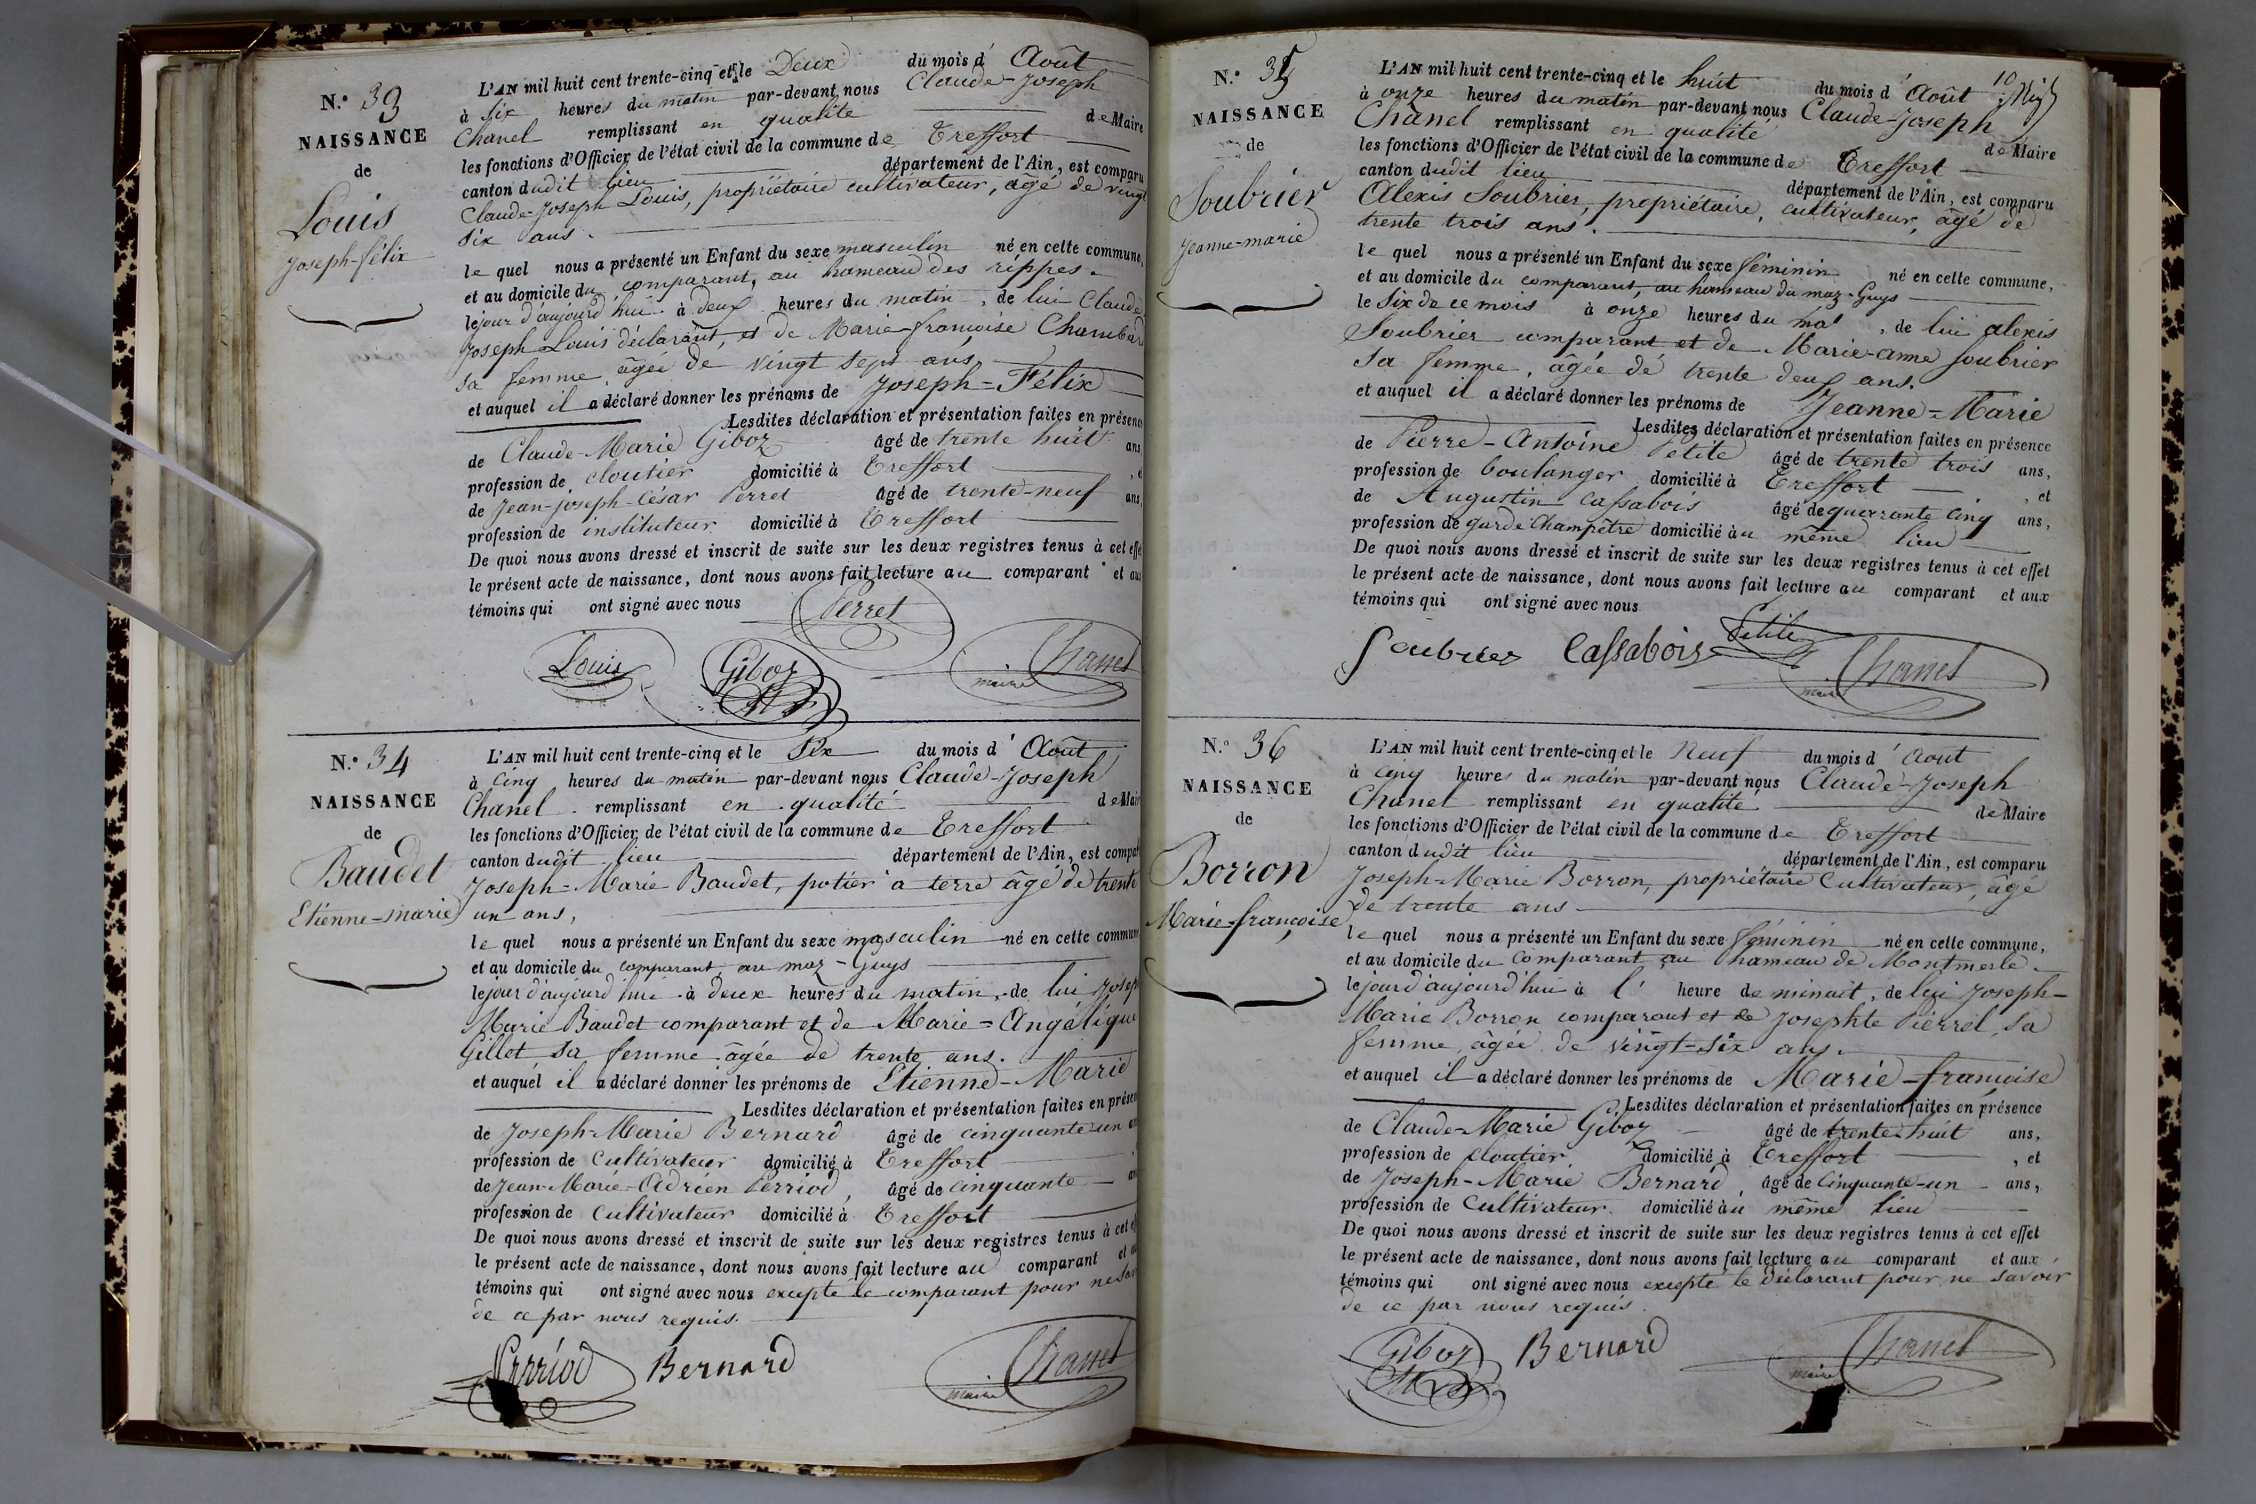 N.º 33
NAISSANCE
de
Louis
Joseph-félix
L'AN mil huit cent trente-cinq et le Deux du mois d' Août
à six heures du matin par-devant nous Claude-Joseph
Chanel remplissant en qualité de Maire
les fonctions d'Officier de l'état civil de la commune de Treffort
canton dudit lieu département de l'Ain, est comparu
Claude-Joseph Louis, propriétaire cultivateur, âgé de vingt
six ans.
le quel nous a présenté un Enfant du sexe masculin né en cette commune,
et au domicile du comparant, au hameau des rippes.
le jour d'aujourd'hui à deux heures du matin, de lui Claude
Joseph Louis déclarant, et de Marie-françoise Chambard
sa femme âgée de vingt sept ans,
et auquel il a déclaré donner les prénoms de Joseph=Félix
Lesdites déclaration et présentation faites en présence
de Claude-Marie Giboz âgé de trente huit ans
profession de cloutier domicilié à Treffort , et
de Jean-joseph-César Perret âgé de trente-neuf ans,
profession de instituteur domicilié à Treffort
De quoi nous avons dressé et inscrit de suite sur les deux registres tenus à cet effet
le présent acte de naissance, dont nous avons fait lecture au comparant et aux
témoins qui ont signé avec nous
Perret
Louis Giboz Chanel
maire
N.º 34
NAISSANCE
de
Baudet
Etienne-marie
L'AN mil huit cent trente-cinq et le Six du mois d' Août
à cinq heures du matin par-devant nous Claude-Joseph
Chanel remplissant en qualité de Maire
les fonctions d'Officier de l'état civil de la commune de Treffort
canton dudit lieu département de l'Ain, est comparu
Joseph-Marie Baudet, potier a terre âgé de trente
un ans,
le quel nous a présenté un Enfant du sexe masculin né en cette commune
et au domicile du comparant au maz-Guys
le jour d'aujourd'hui à deux heures du matin, de lui Joseph
Marie Baudet comparant et de Marie=Angélique
Gillet sa femme âgée de trente ans.
et auquel il a déclaré donner les prénoms de Etienne-Marie
Lesdites déclaration et présentation faites en présence
de Joseph-Marie Bernard âgé de cinquante-un ans
profession de Cultivateur domicilié à Treffort
de Jean-Marie-Adrien Perriod, âgé de cinquante ans
profession de Cultivateur domicilié à Treffort
De quoi nous avons dressé et inscrit de suite sur les deux registres tenus à cet effet
le présent acte de naissance, dont nous avons fait lecture au comparant et aux
témoins qui ont signé avec nous excepté le comparant pour ne savoir
de ce par nous requis.
Perriod Bernard Chanel
maire
N.º 35
NAISSANCE
de
Soubrier
Jeanne-marie
10
L'AN mil huit cent trente-cinq et le huit du mois d' Août
à onze heures du matin par-devant nous Claude-Joseph
Chanel remplissant en qualité de Maire
les fonctions d'Officier de l'état civil de la commune de Treffort
canton dudit lieu département de l'Ain, est comparu
Alexis Soubrier, propriétaire, cultivateur, âgé de
trente trois ans.
le quel nous a présenté un Enfant du sexe féminin né en cette commune,
et au domicile du comparant, au hameau du maz-Guys
le Six de ce mois à onze heures du mat , de lui alexis
Soubrier comparant et de Marie-anne Soubrier
sa femme, âgée de trente deux ans.
et auquel il a déclaré donner les prénoms de Jeanne=Marie
Lesdites déclaration et présentation faites en présence
de Pierre-Antoine Petite âgé de trente trois ans,
profession de boulanger domicilié à Treffort , et
de Augustin Cassabois âgé de quarante cinq ans,
profession de garde Champêtre domicilié au même lieu
De quoi nous avons dressé et inscrit de suite sur les deux registres tenus à cet effet
le présent acte de naissance, dont nous avons fait lecture au comparant et aux
témoins qui ont signé avec nous
Soubrier Cassabois Petite Chanel
maire
N.º 36
NAISSANCE
de
Borron
Marie-françoise
L'AN mil huit cent trente-cinq et le Neuf du mois d' Août
à cinq heures du matin par-devant nous Claude-Joseph
Chanel remplissant en qualité de Maire
les fonctions d'Officier de l'état civil de la commune de Treffort
canton dudit lieu département de l'Ain, est comparu
Joseph-Marie Borron, propriétaire Cultivateur, âgé
de trente ans
le quel nous a présenté un Enfant du sexe féminin né en cette commune,
et au domicile du comparant au hameau de Montmerle
le jour d'aujourd'hui à l' heure de minuit, de lui Joseph-
Marie Borron comparant et de Josephte Pierrel, sa
femme, âgée de vingt-six ans.
et auquel il a déclaré donner les prénoms de Marie-françoise
Lesdites déclaration et présentation faites en présence
de Claude-Marie Giboz âgé de trente huit ans,
profession de cloutier domicilié à Treffort , et
de Joseph-Marie Bernard, âgé de Cinquante-un ans,
profession de Cultivateur domicilié au même lieu
De quoi nous avons dressé et inscrit de suite sur les deux registres tenus à cet effet
le présent acte de naissance, dont nous avons fait lecture au comparant et aux
témoins qui ont signé avec nous excepté le déclarant pour ne savoir
de ce par nous requis.
Giboz Bernard Chanel
maire